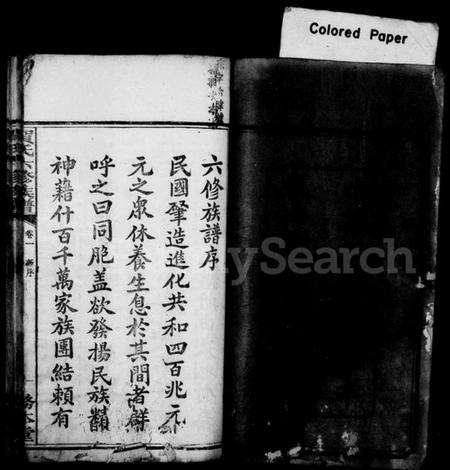 Colored Paper
六修族譜序
民國肇造進化共和四百兆元
元之眾休養生息於其間者鮮
呼之曰同胞蓋欲發揚民族精
神藉什百千萬家族團結賴有
賀氏六修族譜
卷一
新序
MySearch